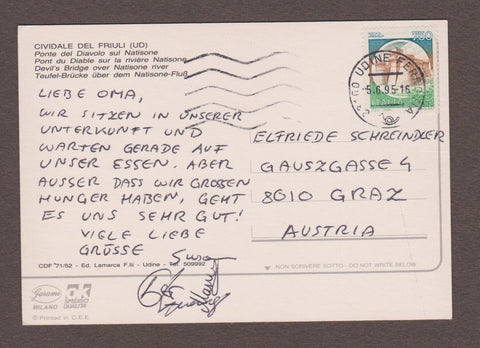 CIVIDALE DEL FRIULI (UD)
Ponte del Diavolo sul Natisone
Pont du Diable sur la rivière Natisone
Devil's Bridge over Natisone river
Teufel-Brücke über dem Natisone-Fluß
LIEBE OMA,
WIR SITZEN IN UNSERER
UNTERKUNFT UND
WARTEN GERADE AUF
UNSER ESSEN. ABER
AUSSER DASS WIR GROSSEN
HUNGER HABEN, GEHT
ES UNS SEHR GUT!
VIELE LIEBE
GRÜSSE
CDF 71/52 - Ed. Lamarca F.lli - Udine - Tel. 509992
MILANO
© Printed in C.E.E.
750
UDINE
5.6.95-16
ELFRIEDE SCHREINDLER
GAUSZGASSE 4
8010 GRAZ
AUSTRIA
NON SCRIVERE SOTTO - DO NOT WRITE BELOW